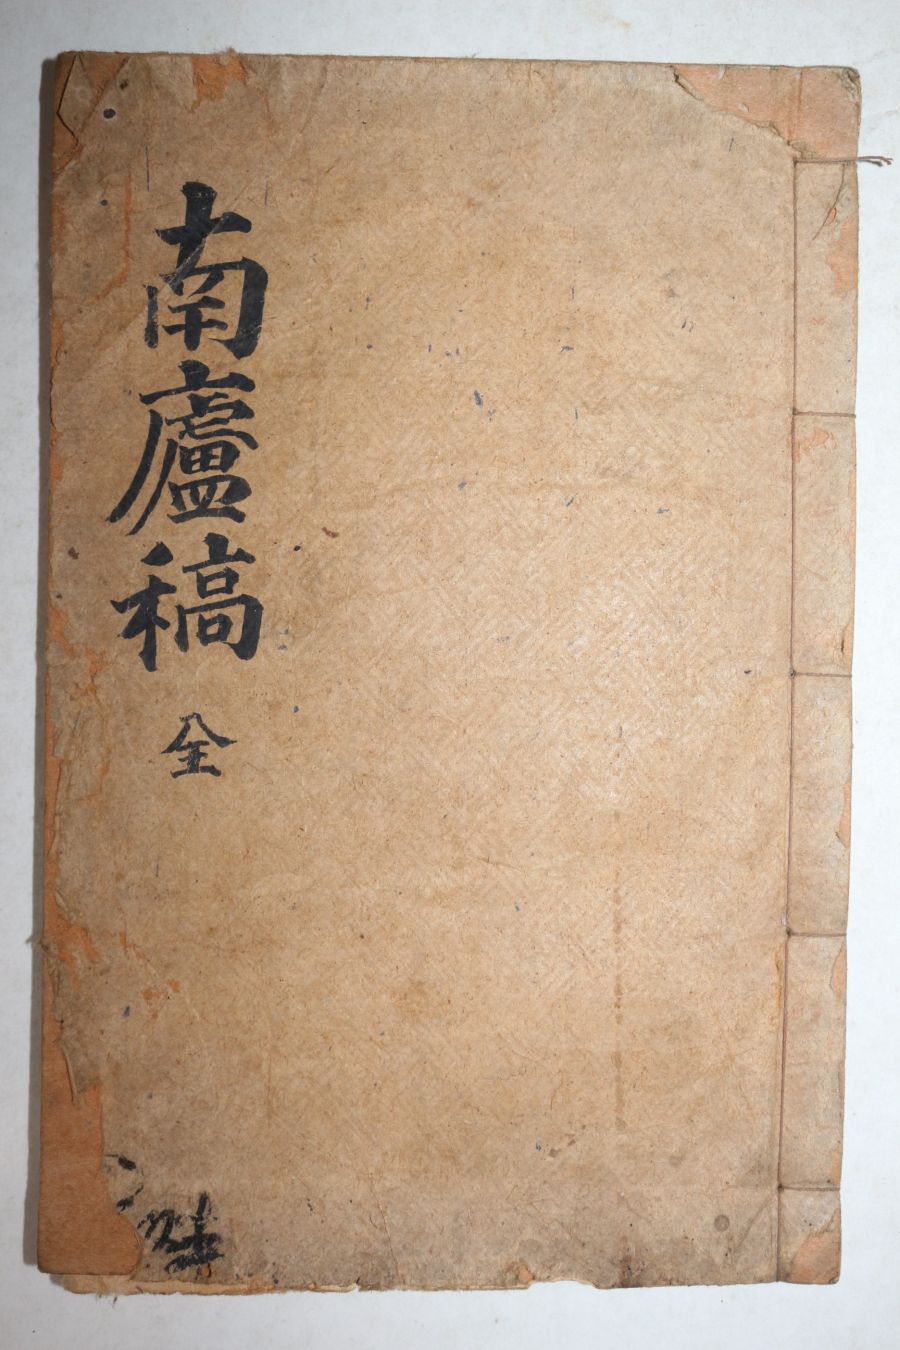 南廬稿 全